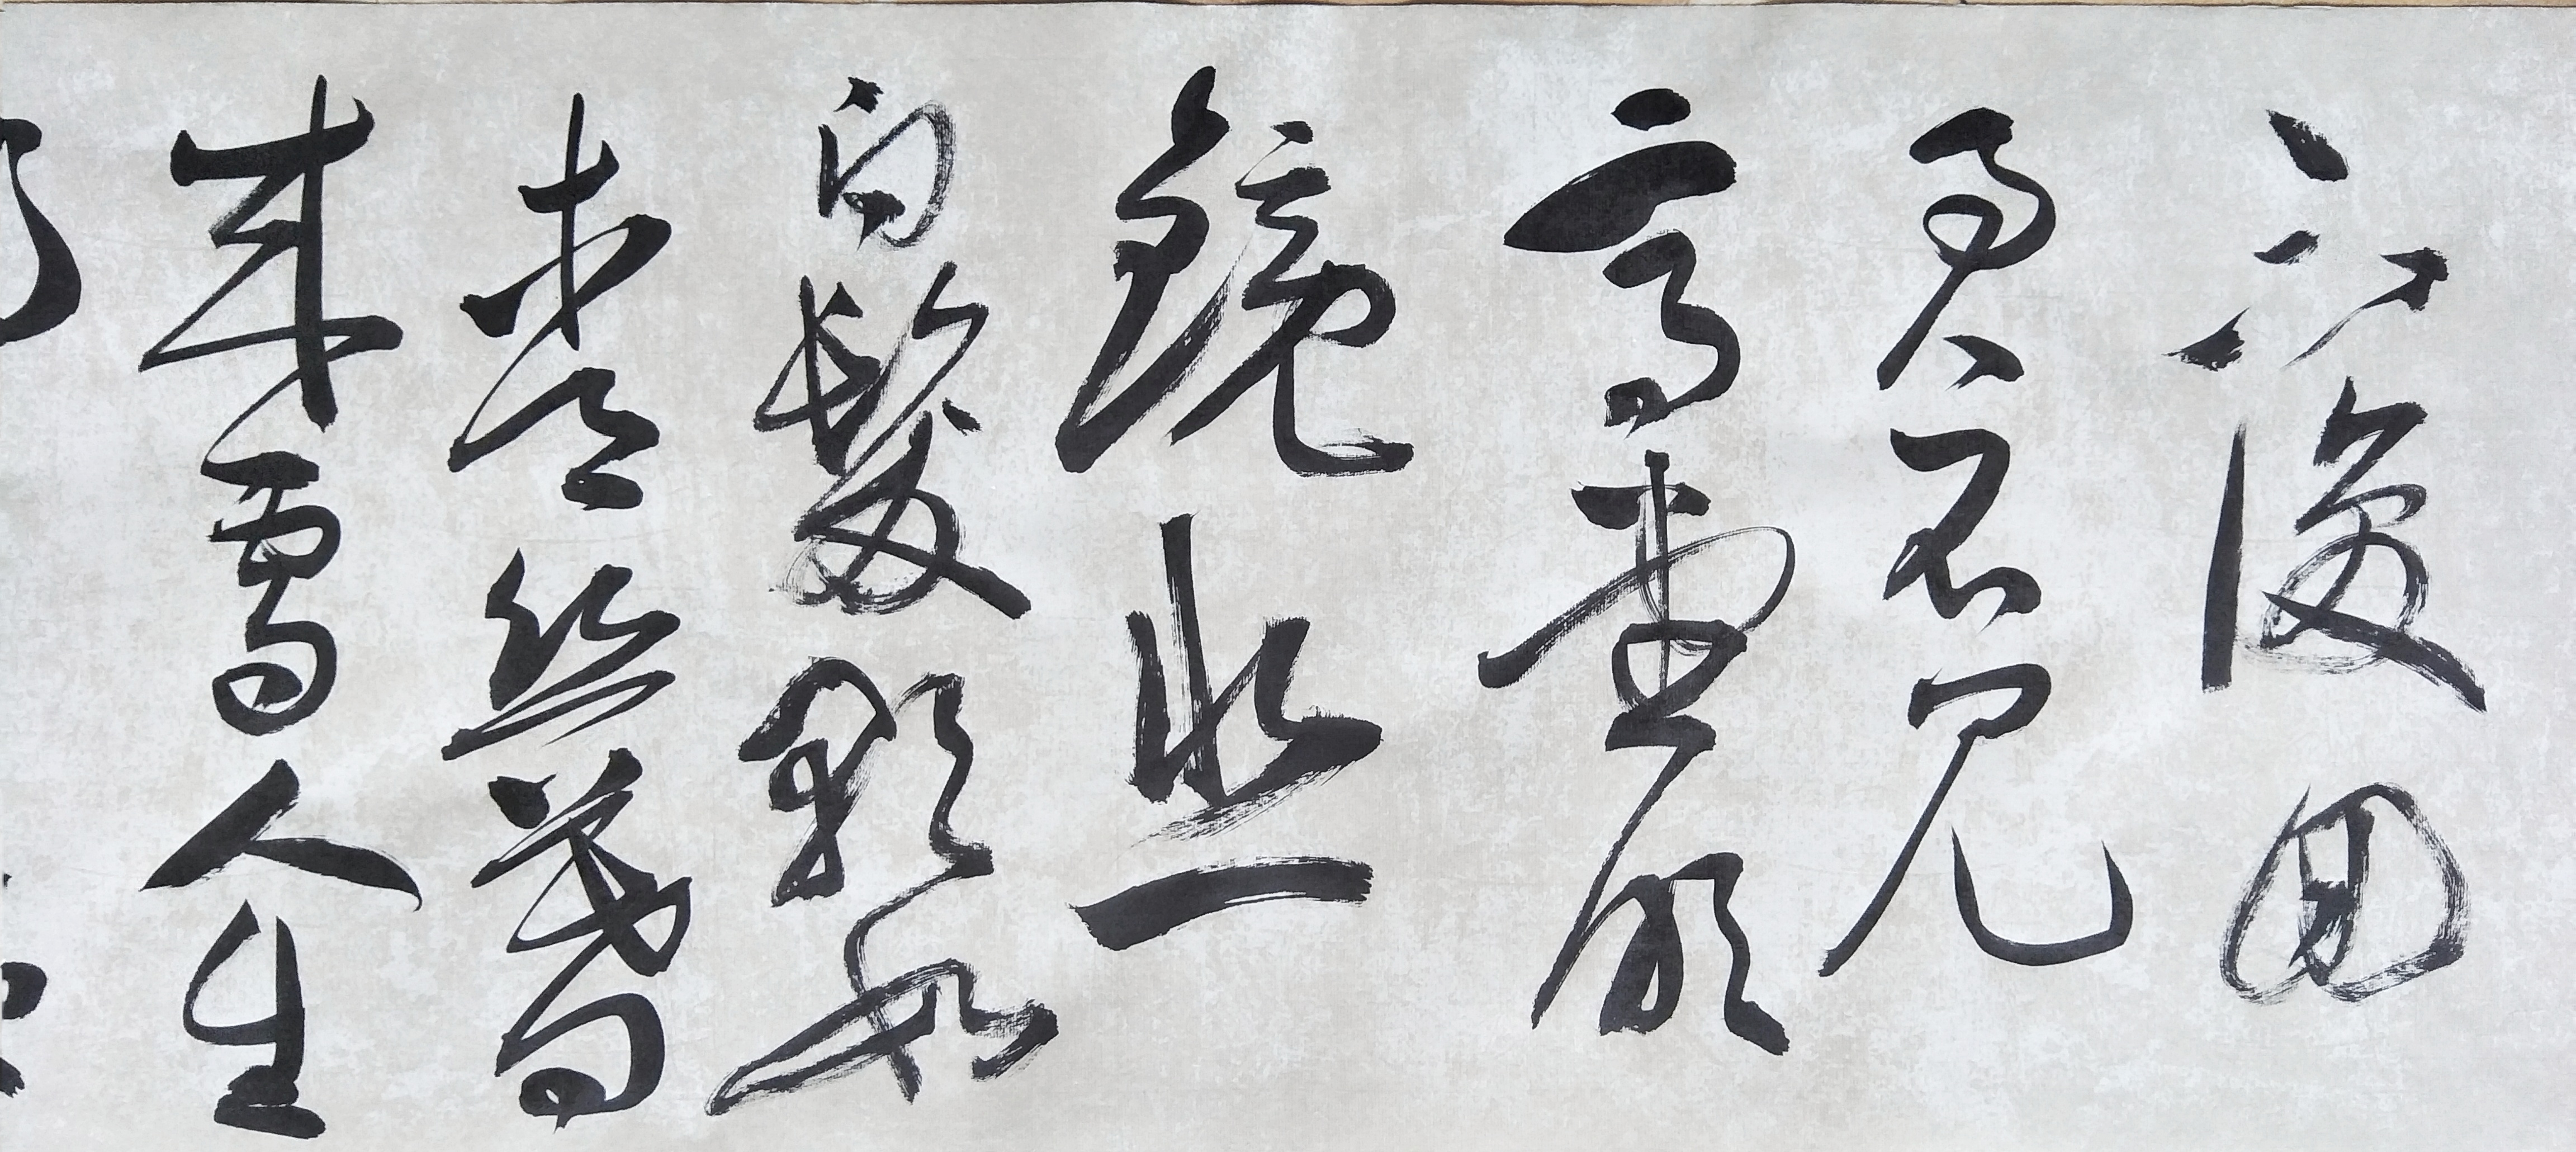 不復回
君不見
高堂明
鏡悲
白髮朝如
青絲暮
成雪人生